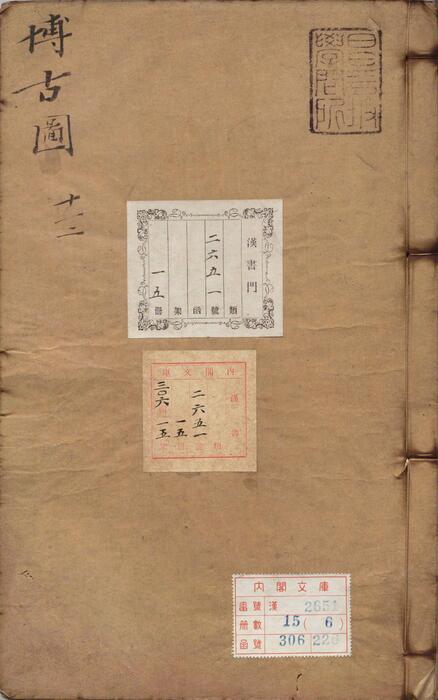 昌平坂
學問所
博古圖
漢書門
類
二六五一號
函
架
一五冊
內閣文庫
漢書
二六五一
一五
三〇六
一五
内閣文庫
番號 漢 2651
冊數 15(6)
函號 306